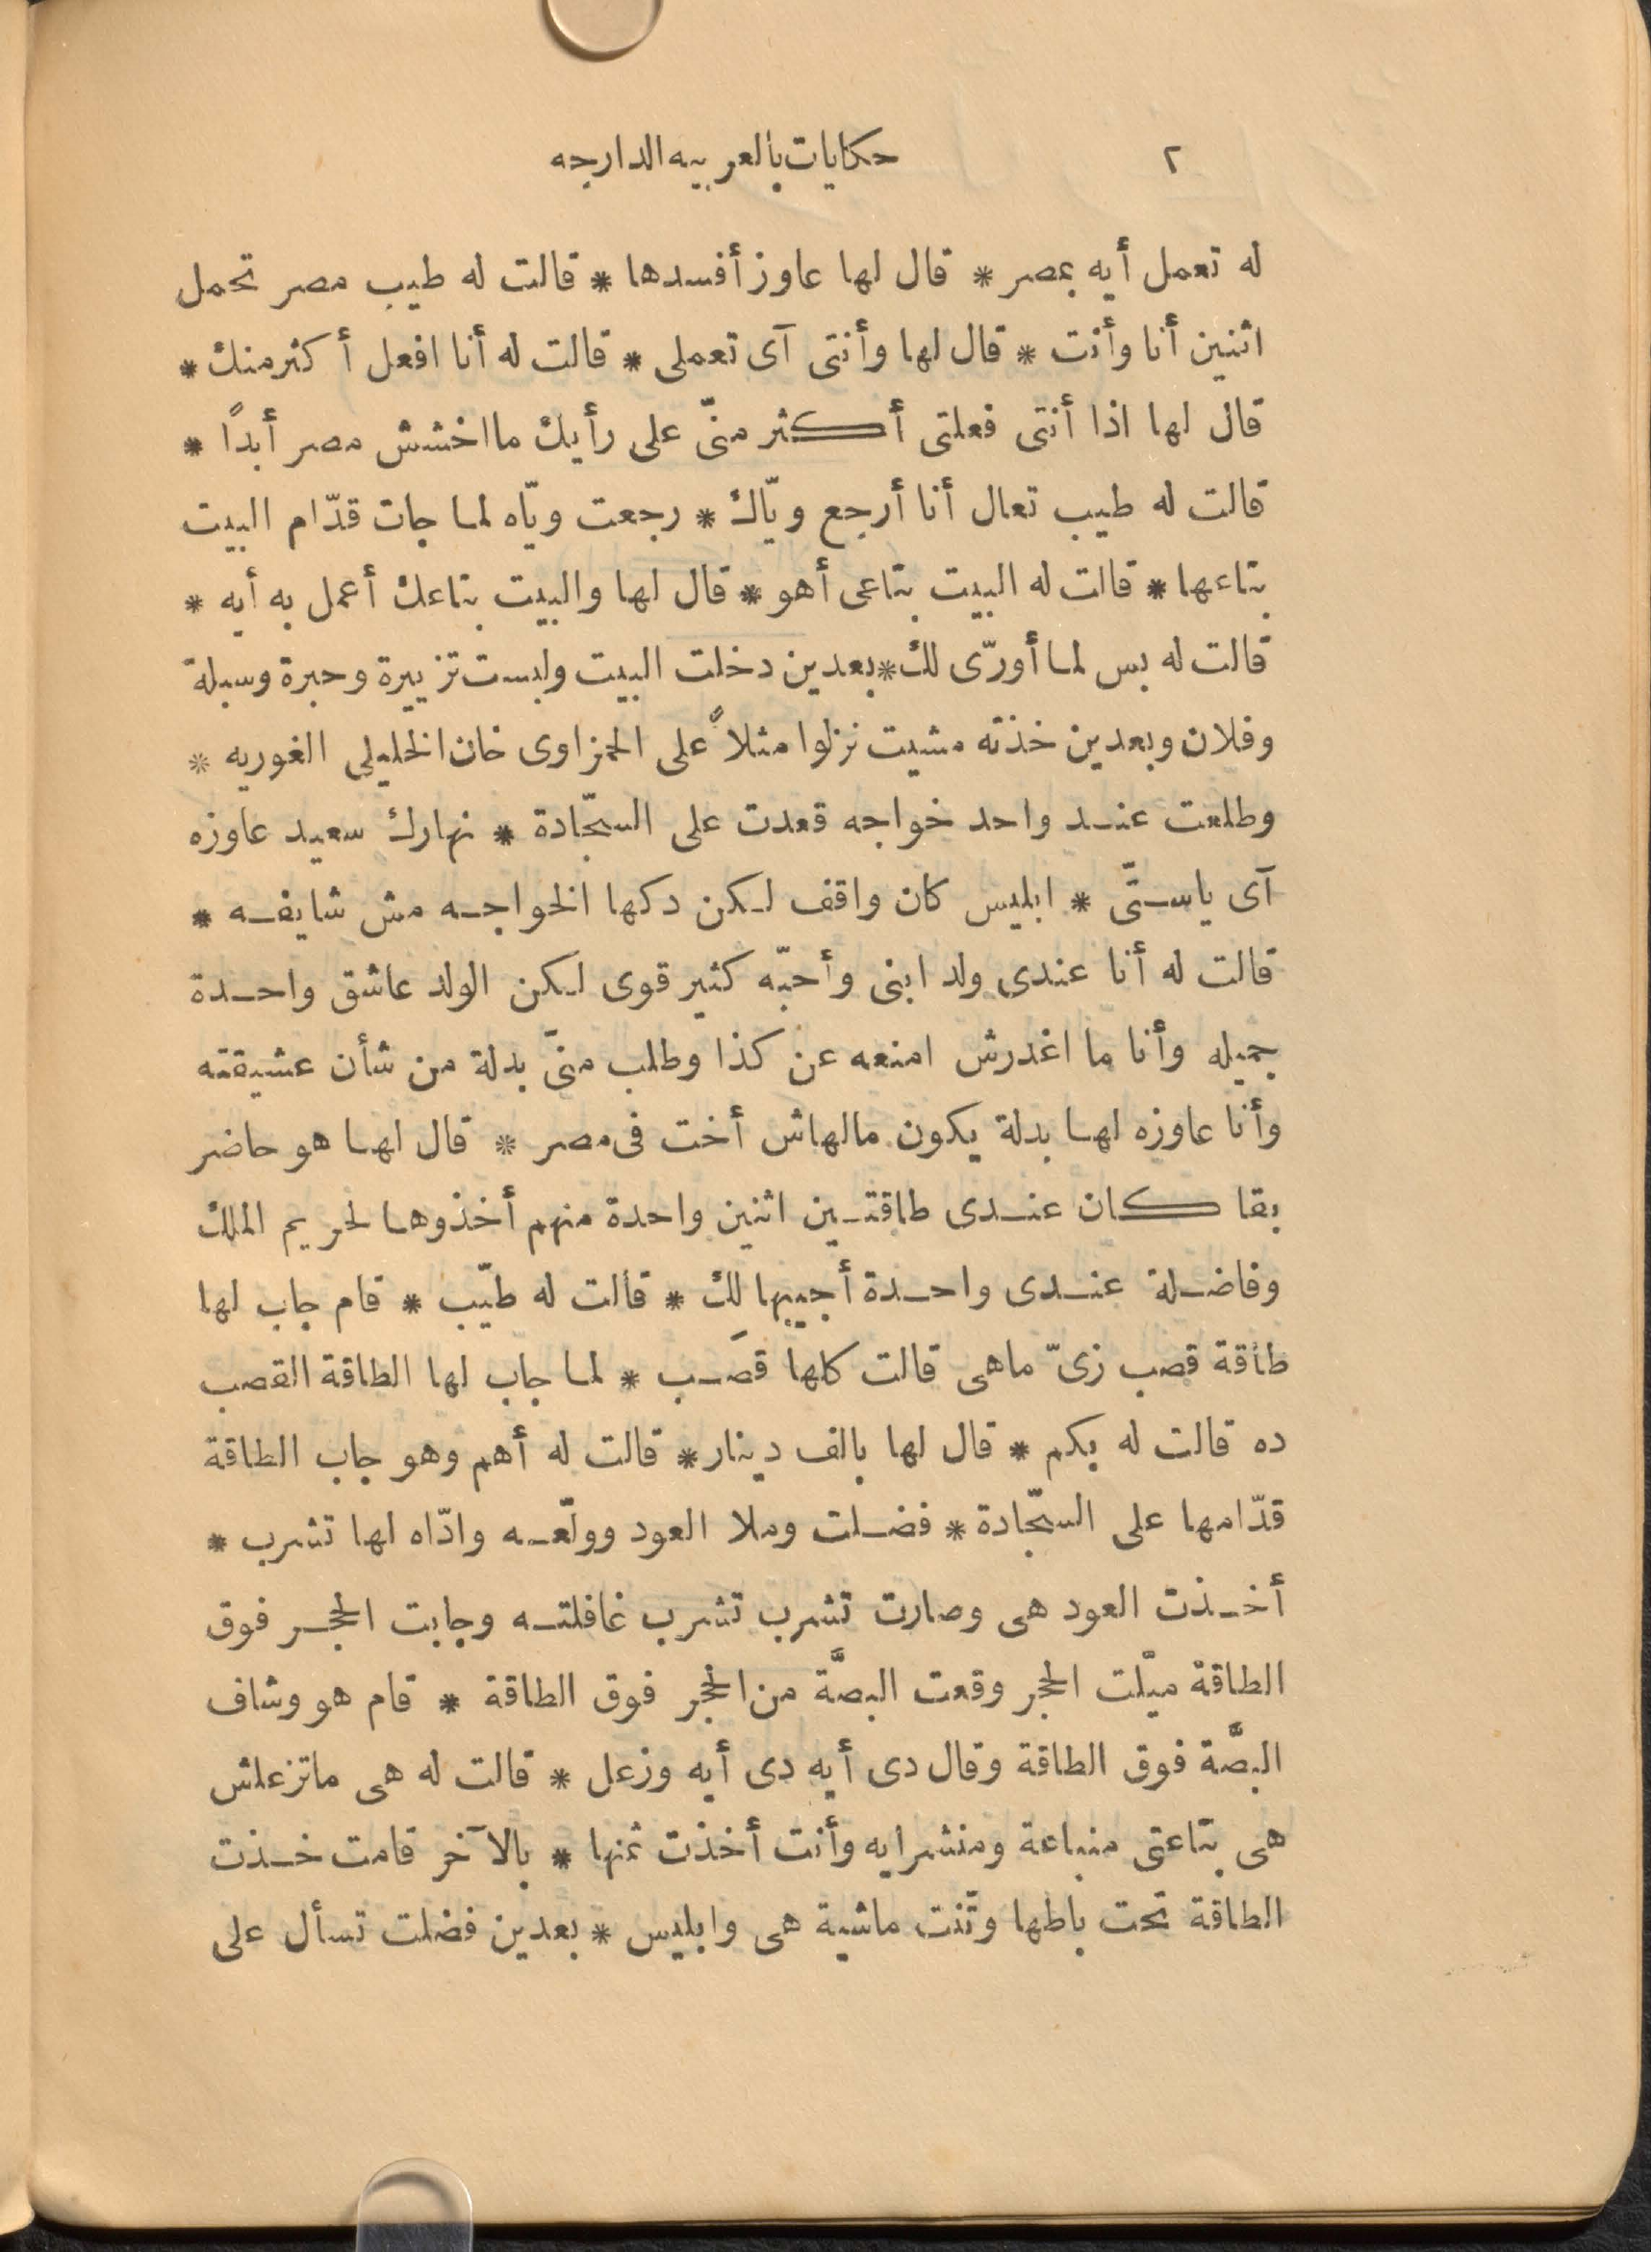 ٢ حكايات بالعربيه الدارجه
له تعمل أيه بمصر * قال لها عاوز أفسدها * قالت له طيب مصر تحمل
اثنين أنا وأنت * قال لها وأنتى آى تعملى * قالت له أنا افعل أكثر منك *
قال لها اذا أنتى فعلتى أكثر منّى على رأيك ما اخشش مصر أبداً *
قالت له طيب تعال أنا أرجع ويّاك * رجعت ويّاه لما جات قدّام البيت
بتاعها * قالت له البيت بتاعى أهو * قال لها والبيت بتاعك أعمل به أيه *
قالت له بس لما أورّى لك * بعدين دخلت البيت ولبست تزييرة وحبرة وسبلة
وفلان وبعدين خذته مشيت نزلوا مثلاً على الحمزاوى خان الخليلى الغوريه *
وطلعت عند واحد خواجه قعدت على السجّادة * نهارك سعيد عاوزه
آى ياستّى * ابليس كان واقف لكن دكها الخواجه مش شايفه *
قالت له أنا عندى ولد ابنى وأحبّه كثير قوى لكن الولد عاشق واحدة
جميله وأنا ما اغدرش امنعه عن كذا وطلب منّى بدلة من شأن عشيقته
وأنا عاوزه لها بدلة يكون مالهاش أخت فى مصر * قال لها هو حاضر
بقا كان عندى طاقتين اثنين واحدة منهم أخذوها لحريم الملك
وفاضلة عندى واحدة أجيبها لك * قالت له طيّب * قام جاب لها
طاقة قصب زىّ ماهى قالت كلها قصَب * لما جاب لها الطاقة القصب
ده قالت له بكم * قال لها بالف دينار * قالت له أهم وهو جاب الطاقة
قدّامها على السجّادة * فضلت وملا العود وولّعه وادّاه لها تشرب *
أخذت العود هى وصارت تشرب تشرب غافلته وجابت الحجر فوق
الطاقة ميّلت الحجر وقعت البصَّة من الحجر فوق الطاقة * قام هو وشاف
البصَّة فوق الطاقة وقال دى أيه دى أيه وزعل * قالت له هى ماتزعلش
هى بتاعتى منباعة ومنشرايه وأنت أخذت ثمنها * بالآخر قامت خذت
الطاقة تحت باطها وتّنت ماشية هى وابليس * بعدين فضلت تسأل على